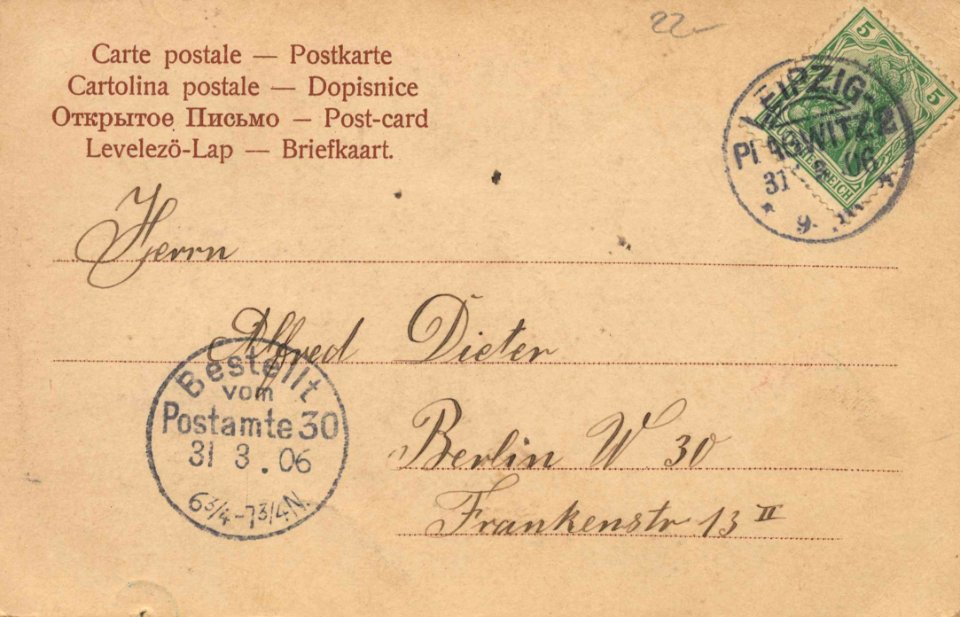 22-
Carte postale — Postkarte
Cartolina postale — Dopisnice
Открытое Письмо — Post-card
Levelezö-Lap — Briefkaart.
5
5
LEIPZIG-
PLAGWITZ
31 06
9-
REICH
Herrn
Alfred Dieter
Bestellt
vom
Postamte 30
31 3. 06
6 3/4-7 3/4 N.
Berlin W 30
Frankenstr 13 II